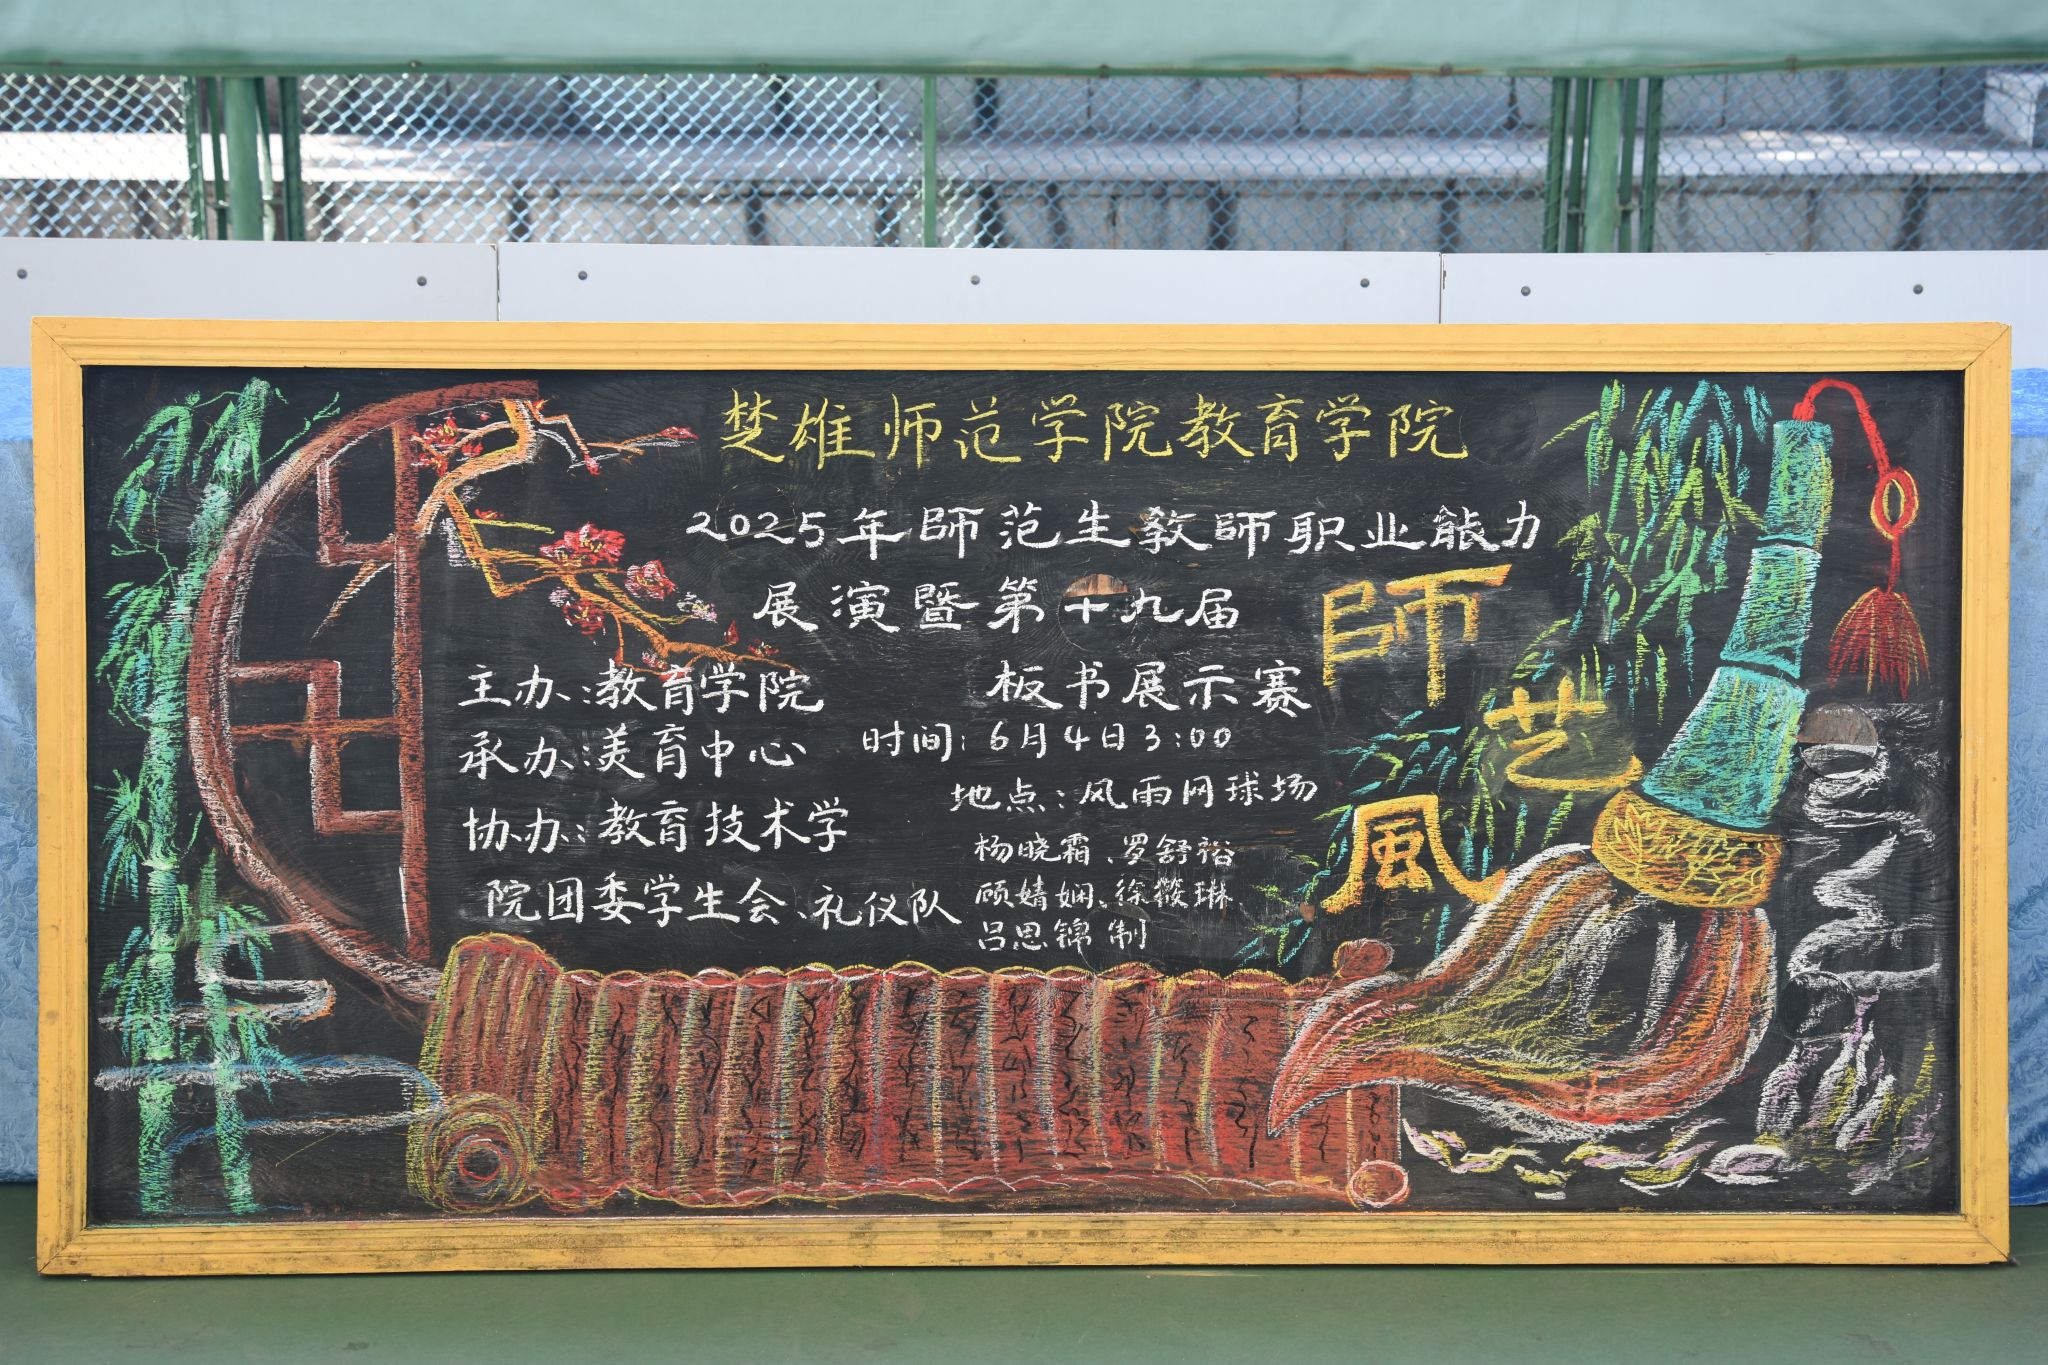 楚雄师范学院教育学院
2025年師范生教師职业能力
展演暨第十九届
板书展示赛
主办:教育学院
承办:美育中心
协办:教育技术学
院团委学生会、礼仪队
时间:6月4日3:00
地点:风雨网球场
杨晓霜、罗舒裕
顾婧娴、徐薇琳
吕思锦 制
師
艺
風